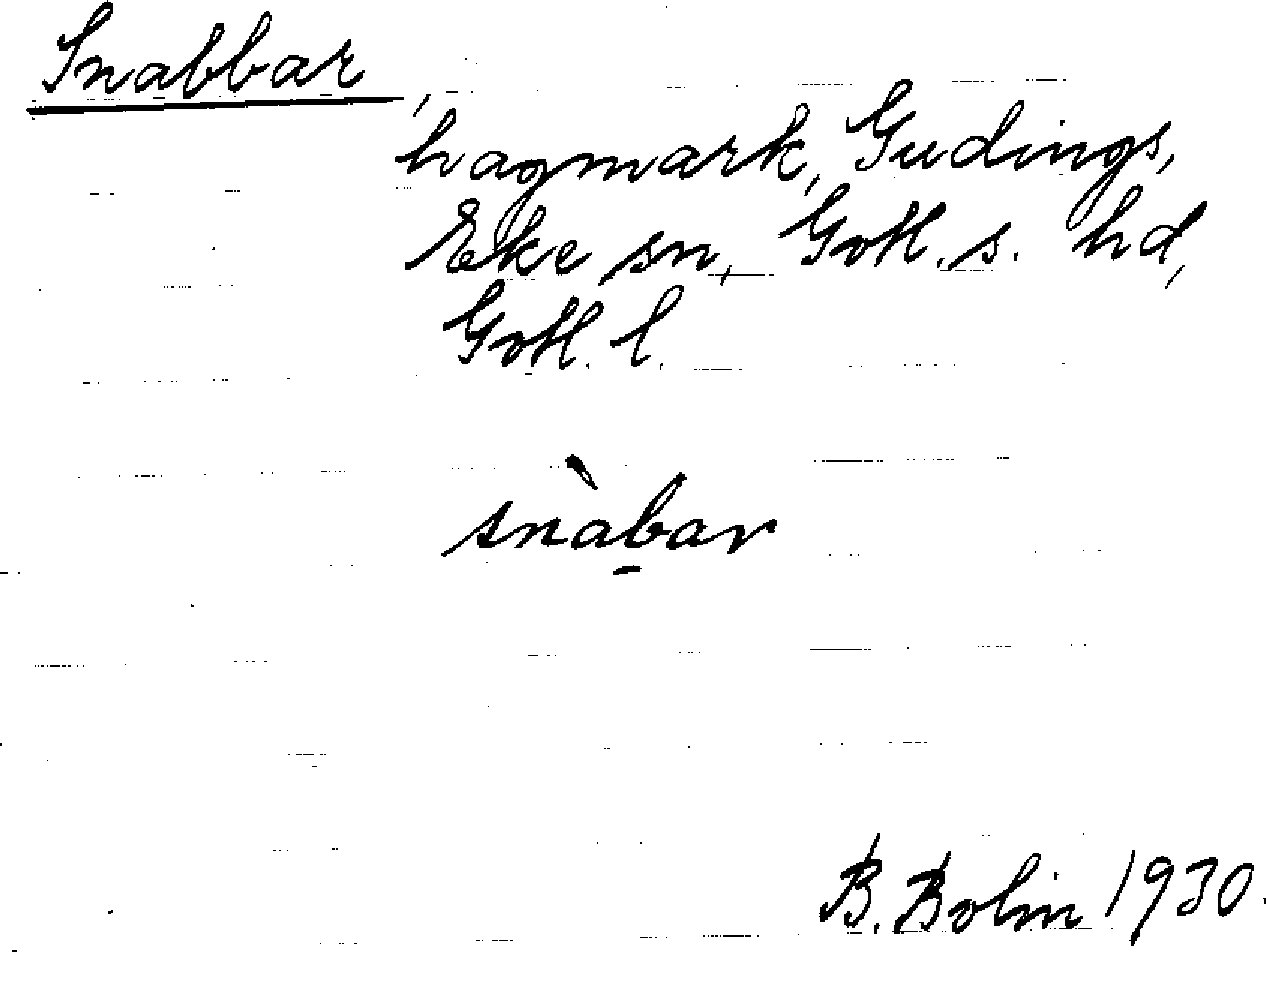 Snabbar,
hagmark, Gudings,
Eke sn, Gotl. s. hd,
Gotl. l.
snàb̠ar
B. Bolin 1930.